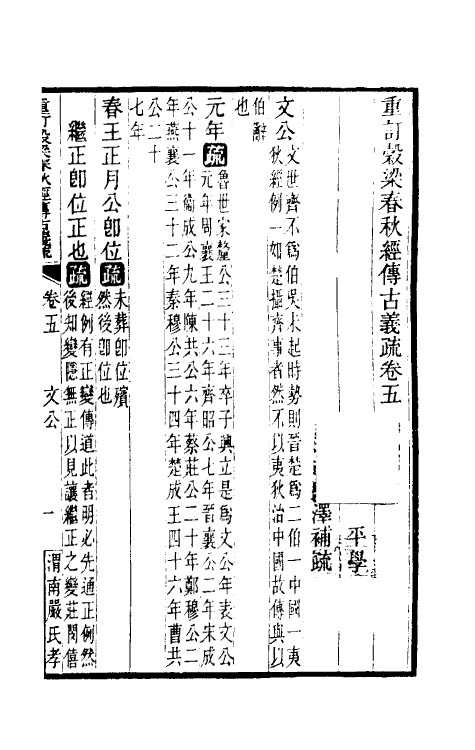 重訂穀梁春秋經傳古義疏卷五
平學
澤補疏
文公文世齊不爲伯吳未起時勢則晉楚爲二伯一中國一夷
狄經例一如楚攝齊事者然不以夷狄治中國故傳與以
伯辭
也
元年疏魯世家釐公三十三年卒子興立是爲文公年表文公
元年周襄王二十六年齊昭公七年晉襄公二年宋成
公十一年衞成公九年陳共公六年蔡莊公二十年鄭穆公二
年燕襄公三十二年秦穆公三十四年楚成王四十六年曹共
公二十
七年
春王正月公卽位疏未葬卽位殯
然後卽位也
繼正卽位正也疏經例有正變傳道此者明必先通正例然
後知變隱無正以見讓繼正之變莊閔僖
重訂穀梁春秋經傳古義疏
卷五
文公
一
渭南嚴氏孝